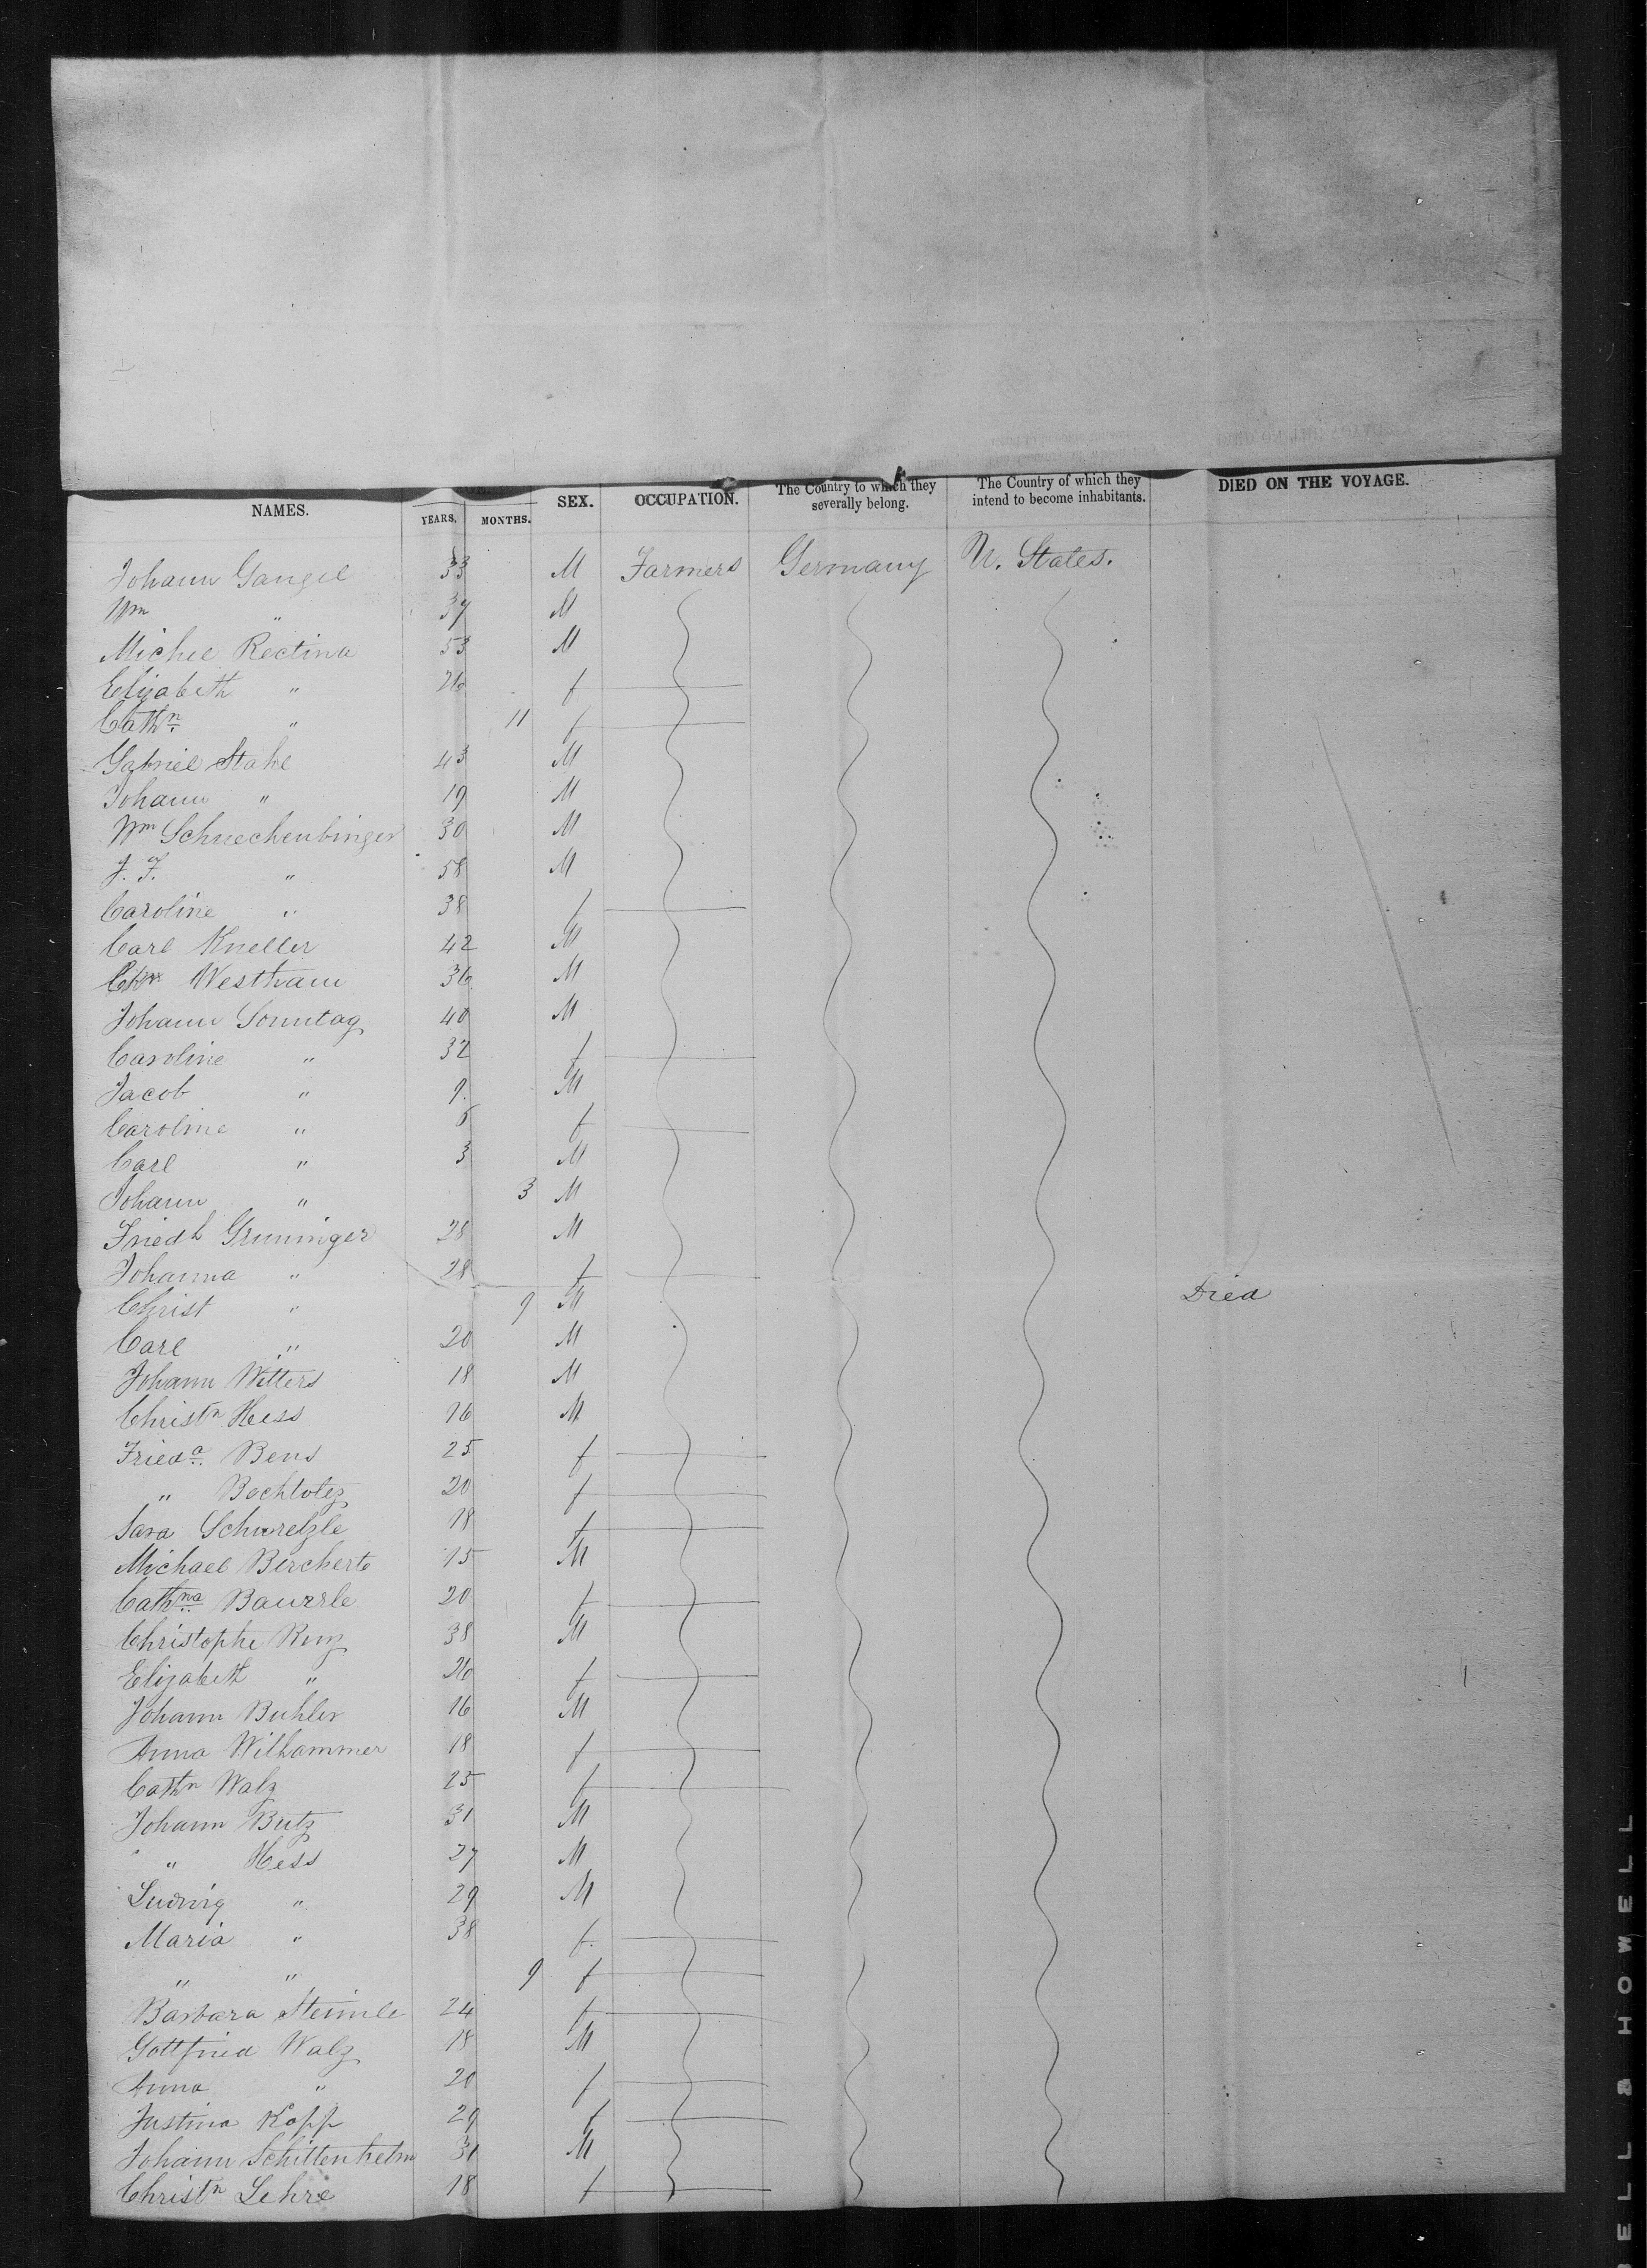 NAMES. YEARS. MONTHS. SEX. OCCUPATION. The Country to which they severally belong. The Country of which they intend to become inhabitants. DIED ON THE VOYAGE.
Johann Gangel 33 M Farmers Germany U. States.
Wm " 37 M
Michel Rectina 53 M
Elizabeth " 26 f
Cathn " 11 f
Gabriel Stahl 43 M
Johann " 19 M
Wm Schneckenbinger 30 M
J. F. " 58 M
Caroline " 38 f
Carl Kneller 42 M
Chr Westham 36 M
Johann Sonntag 40 M
Caroline " 32 f
Jacob " 9. M
Caroline " 6 f
Carl " 3 M
Johann " 3 M
Friedh Gruninger 28 M
Johanna " 28 f
Christ " 9 M Died
Carl " 20 M
Johann Witters 18 M
Christn Hess 16 M
Frieda Bens 25 f
" Bechtolz 20 f
Sara Schwelzle 18 f
Michael Bircherto 15 M
Cathna Baurrle 20 f
Christophe Kunz 38 M
Elizabeth " 26 f
Johann Buhler 16 M
Anna Wilhammer 18 f
Cathn Walz 25 f
Johann Butz 31 M
" Hess 27 M
Ludwig " 29 M
Maria " 38 f.
" " 9 f
Barbara Steimle 24 f
Gottfried Walz 18 M
Anna " 20 f
Justina Kopp 29 f
Johann Schittenhelm 31 M
Christn Lehre 18 f
BELL & HOWELL